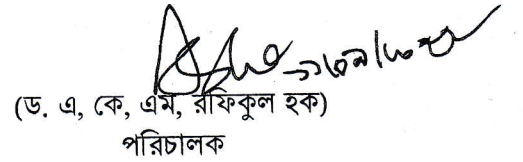 (ড. এ, কে, এম, রফিকুল হক)
পরিচালক